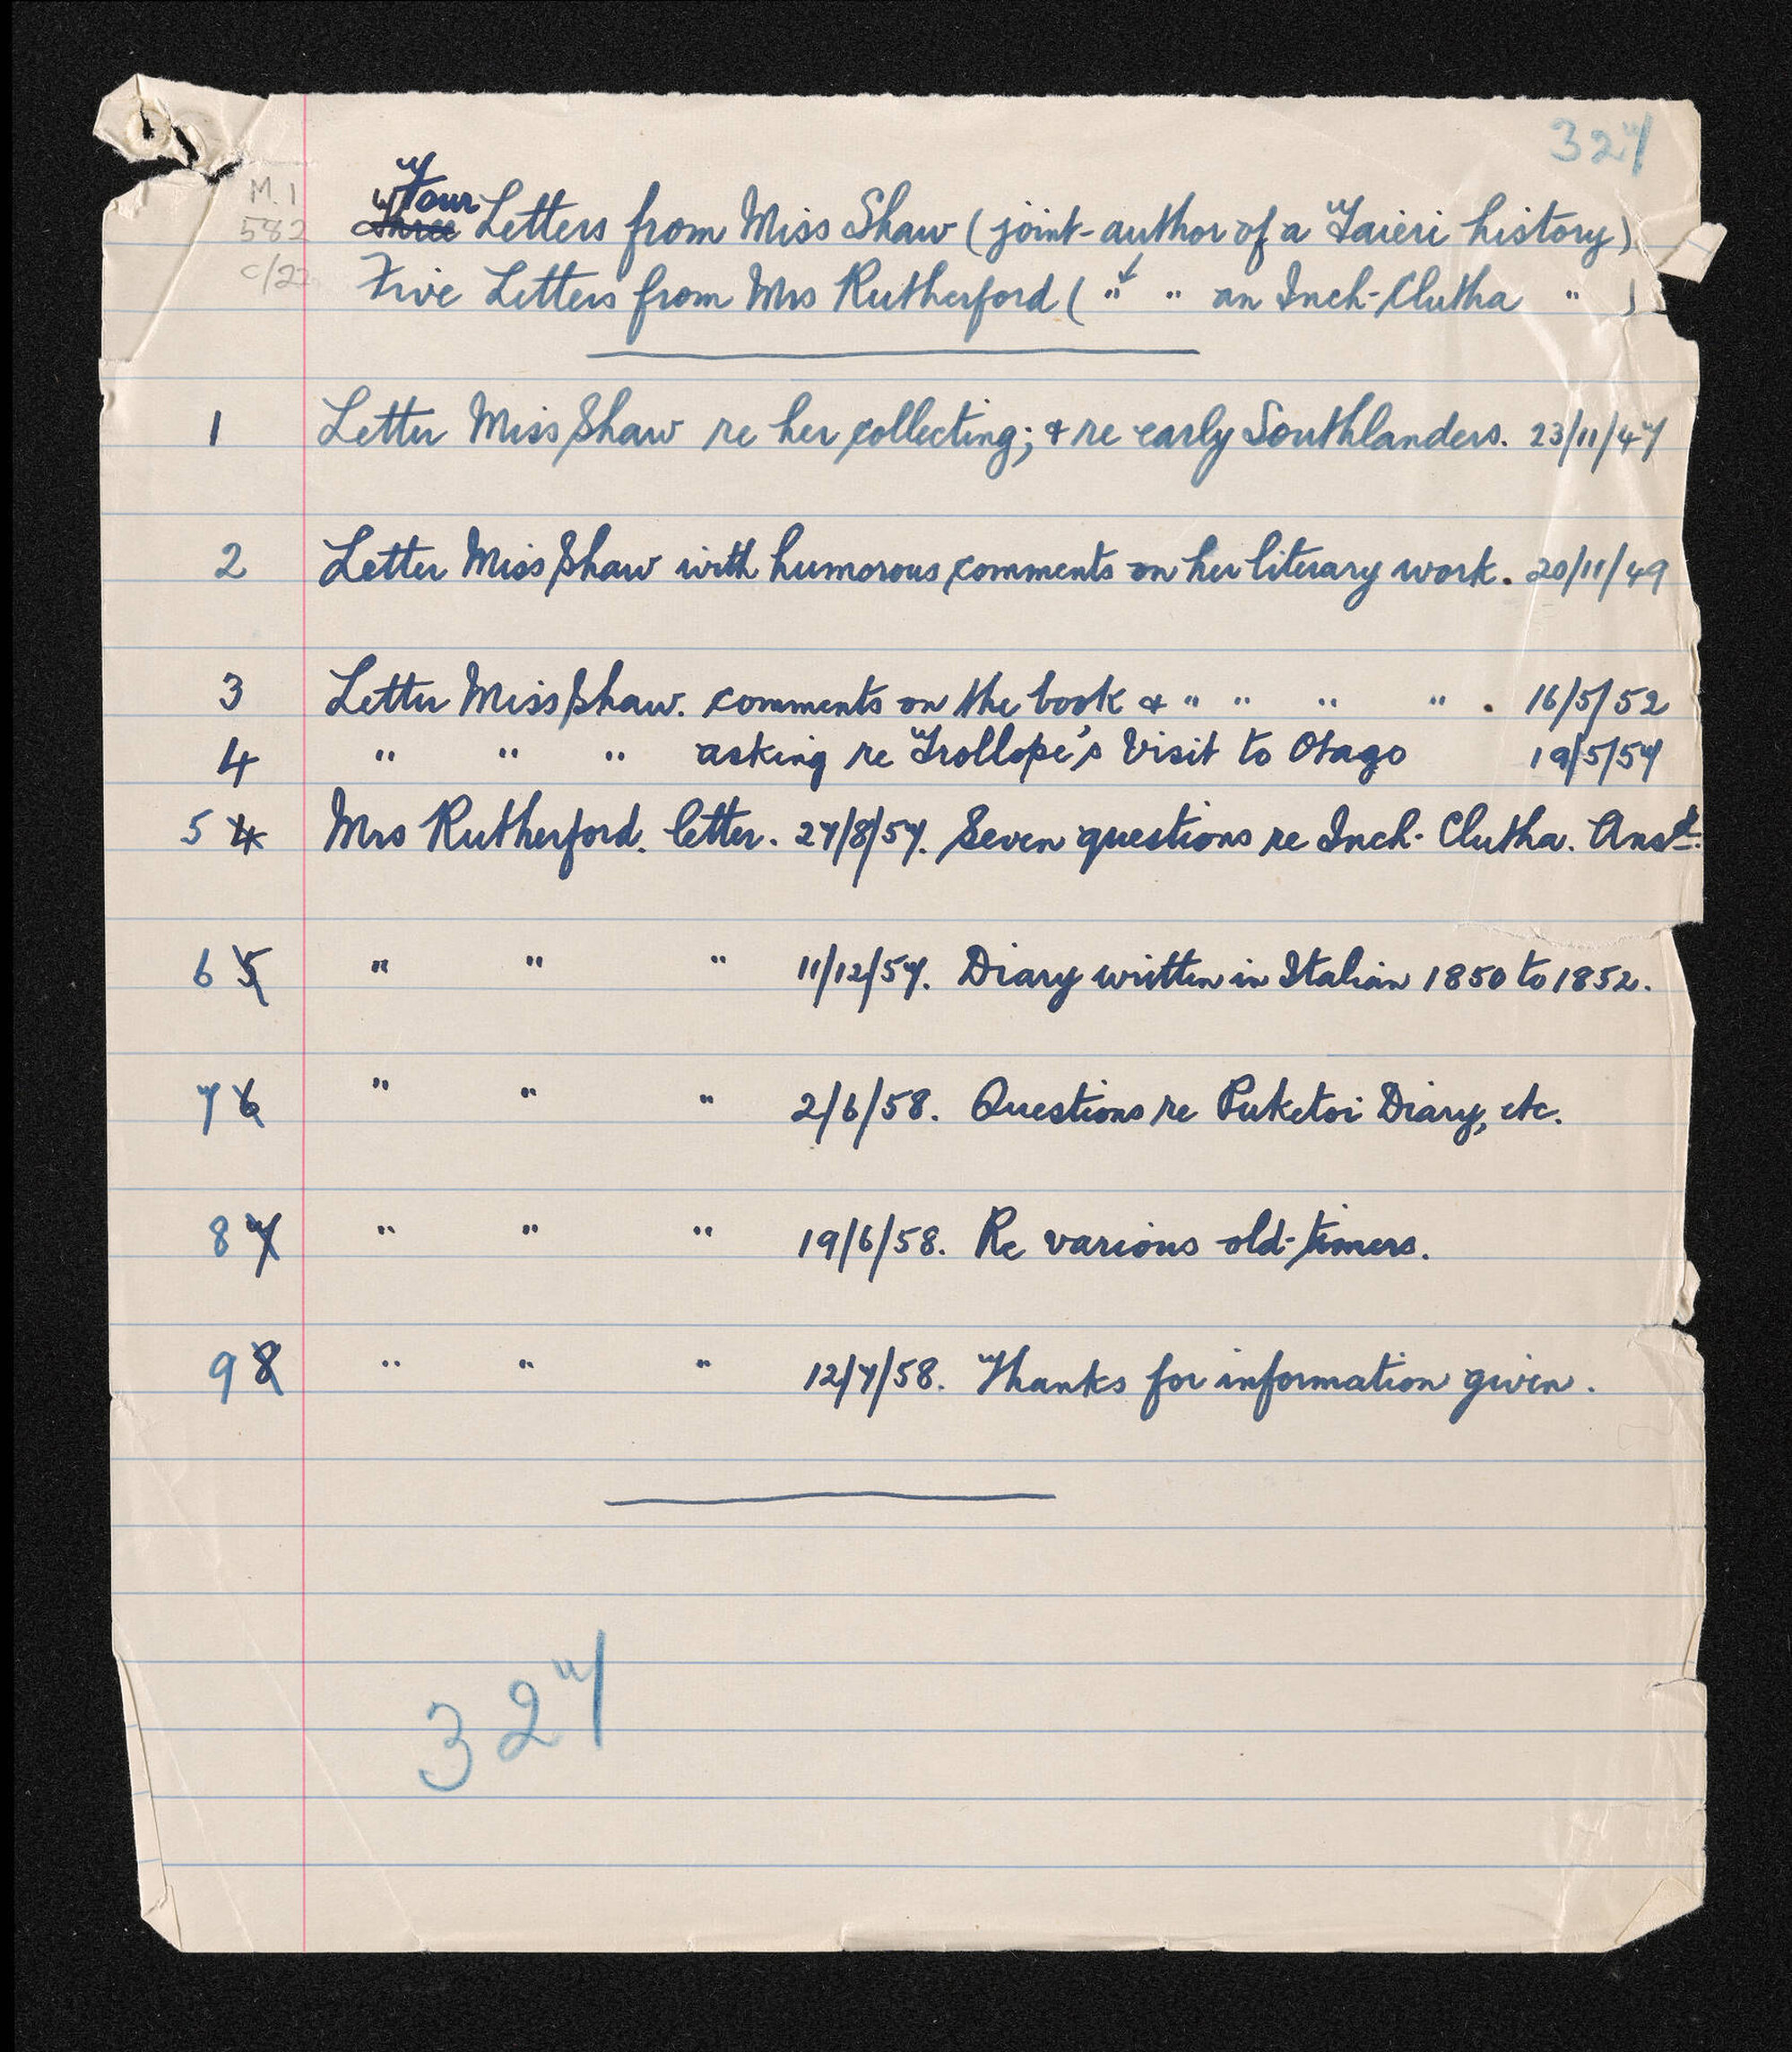 327
M.I
582
c/22
Four
Three Letters from Miss Shaw (joint-author of a Taieri history)
Five Letters from Mrs Rutherford ( " " an Inch-Clutha " )
1 Letter Miss Shaw re her collecting; & re early Southlanders. 23/11/47
2 Letter Miss Shaw with humorous comments on her literary work. 20/11/49
3 Letter Miss Shaw. comments on the book & " " " " . 16/5/52
4 " " " asking re Trollope's Visit to Otago 19/5/57
5 4 Mrs Rutherford. letter. 27/8/57. Seven questions re Inch-Clutha. Ansd.
6 5 " " " 11/12/57. Diary written in Italian 1850 to 1852.
7 6 " " " 2/6/58. Questions re Puketoi Diary, etc.
8 7 " " " 19/6/58. Re various old-timers.
9 8 " " " 12/7/58. Thanks for information given.
327